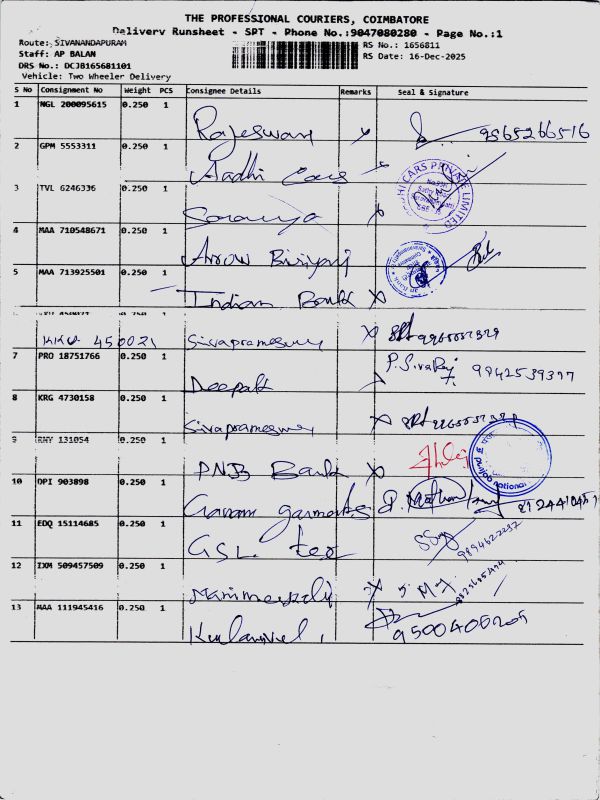 THE PROFESSIONAL COURIERS, COIMBATORE
Delivery Runsheet - SPT - Phone No.:9047080280 - Page No.:1
Route: SIVANANDAPURAM
RS No.: 1656811
Staff: AP BALAN
RS Date: 16-Dec-2025
DRS No.: DCJB165681101
Vehicle: Two Wheeler Delivery
S No Consignment No Weight PCS Consignee Details Remarks Seal & Signature
1 NGL 200095615 0.250 1 Rajeswari 9565266516
2 GPM 5553311 0.250 1 Aadhi Cars
3 TVL 6246336 0.250 1 Soranya
4 MAA 710548671 0.250 1 Arrow Biriyani
5 MAA 713925501 0.250 1 Indian Bank
KKV 450021 0.250 1 Sivaprameswry
7 PRO 18751766 0.250 1 Deepak P. Sivaraj 9842539377
8 KRG 4730158 0.250 1 Sivaprameswry
9 RNY 131054 0.250 1 PNB Bank
10 OPI 903898 0.250 1 garments
11 EDQ 15114685 0.250 1 GSL tex 9894622232
12 IXM 509457509 0.250 1
13 MAA 111945416 0.250 1 9500406205